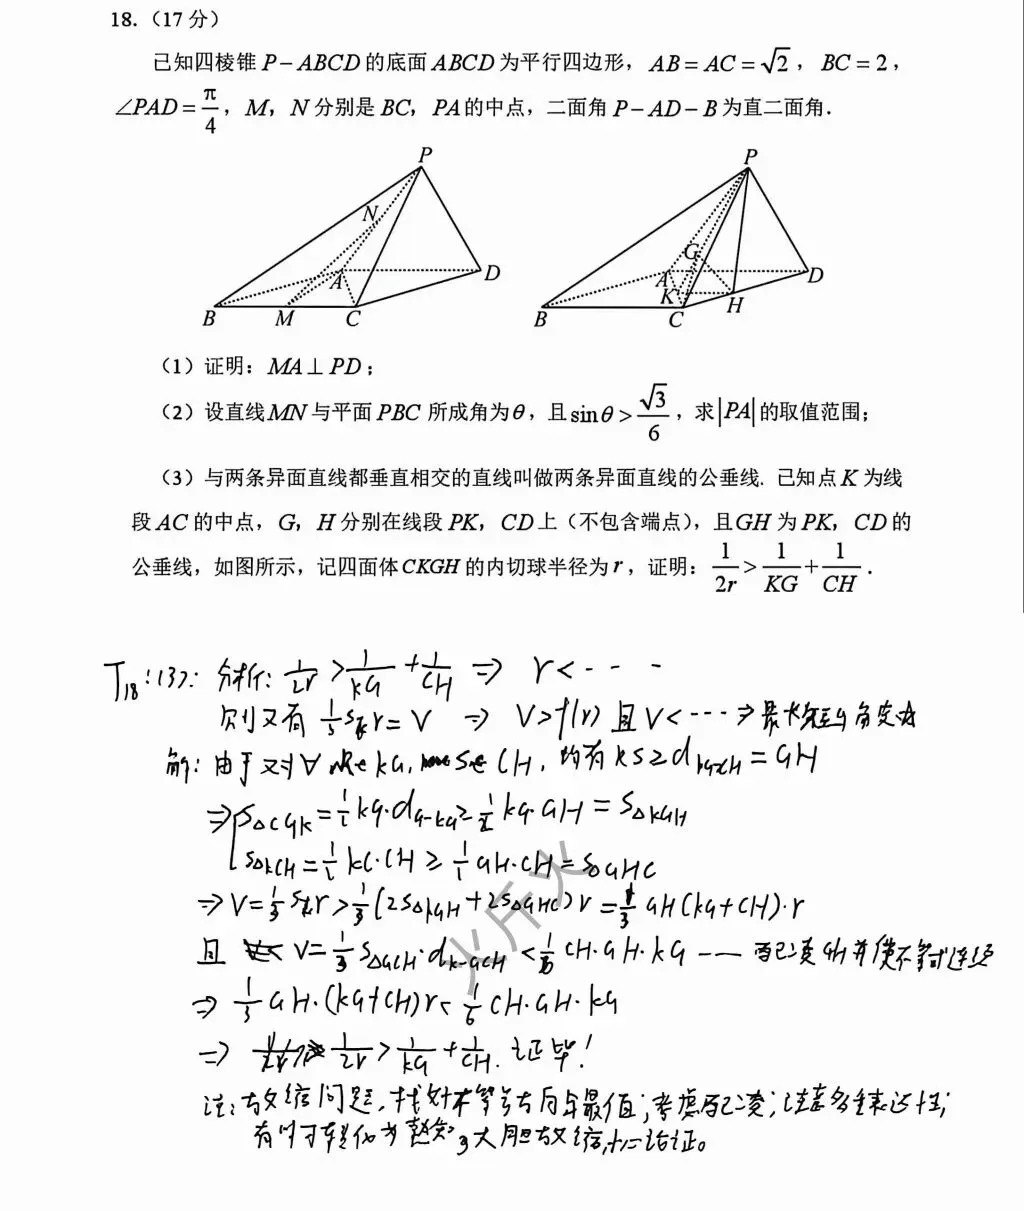 18.（17 分）
已知四棱锥 P－ABCD 的底面 ABCD 为平行四边形，AB＝AC＝√2，BC＝2，
∠PAD＝π/4，M，N 分别是 BC，PA 的中点，二面角 P－AD－B 为直二面角．
P P
N G
A D A D
K H
B M C B C
（1）证明：MA⊥PD；
（2）设直线MN 与平面 PBC 所成角为θ，且sinθ＞√3/6，求|PA|的取值范围；
（3）与两条异面直线都垂直相交的直线叫做两条异面直线的公垂线. 已知点 K 为线
段 AC 的中点，G，H 分别在线段 PK，CD上（不包含端点），且GH 为 PK，CD 的
公垂线，如图所示，记四面体CKGH 的内切球半径为 r，证明：1/2r＞1/KG＋1/CH．
T18:(3): 分析: 1/2r > 1/KG + 1/CH ⇒ r < - - -
则又有 1/3 S r = V ⇒ V > f(r) 且 V < - - - ⇒
解: 由于对∀ KG, CH, 均有 KS ≥ d = GH
⇒ S△CGK = 1/2 KG·d ≥ 1/2 KG·GH = S△KGH
S△KCH = 1/2 KC·CH ≥ 1/2 GH·CH = S△GHC
⇒ V = 1/3 S r > 1/3 (2S△KGH + 2S△GHC) r = 1/3 GH(KG+CH)·r
且 V = 1/3 S△GCH·dK-GCH < 1/6 CH·GH·KG —— 配凑GH并使不等式连续
⇒ 1/3 GH·(KG+CH) r < 1/6 CH·GH·KG
⇒ 1/2r > 1/KG + 1/CH. 证毕!
注: 放缩问题, 找好不等号方向与最值; 考虑配凑; 注意多重表达性;
有时可转化为熟知, 大胆放缩, 小心论证。
火斤火